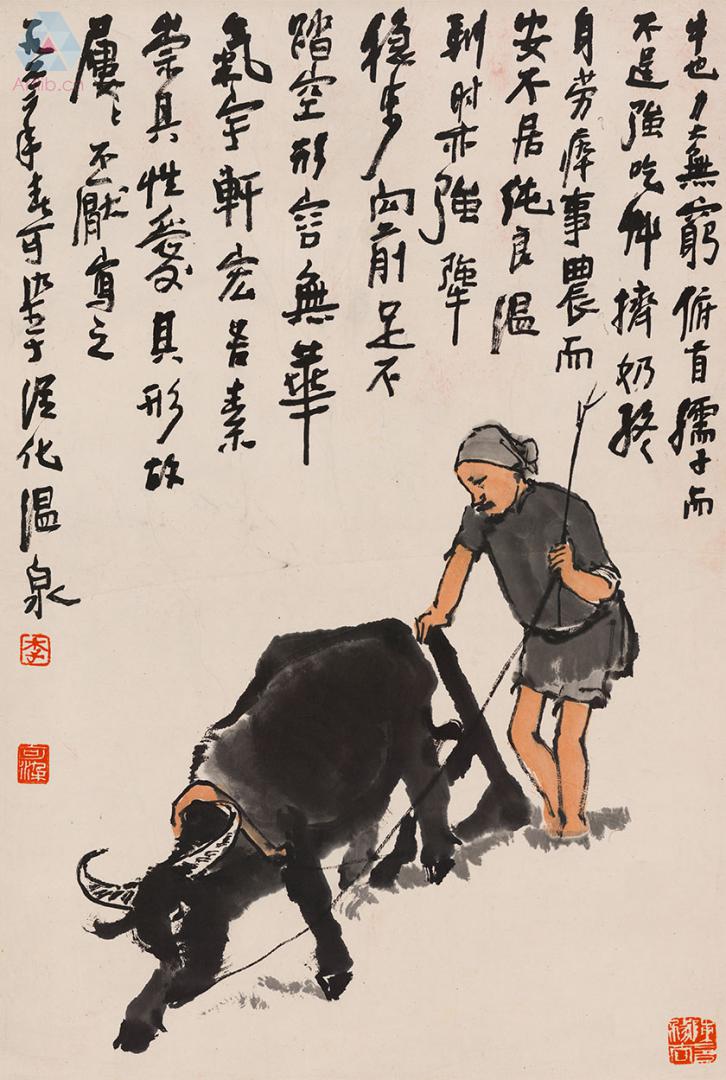 牛也力大無窮俯首孺子而
不逞強吃草擠奶終
身勞瘁事農而
安不居純良溫
馴時亦強犟
穩步向前足不
踏空形容無華
氣宇軒宏吾素
崇其性愛其形故
屢〻不厭寫之
年春可染于從化溫泉
李